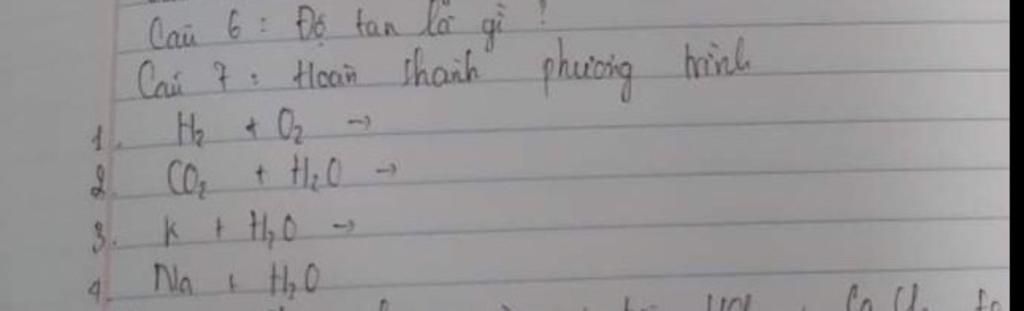 Câu 6 : Độ tan là gì ?
Câu 7 : Hoàn thành phương trình
1. H₂ + O₂ →
2. CO₂ + H₂O →
3. K + H₂O →
4. Na + H₂O